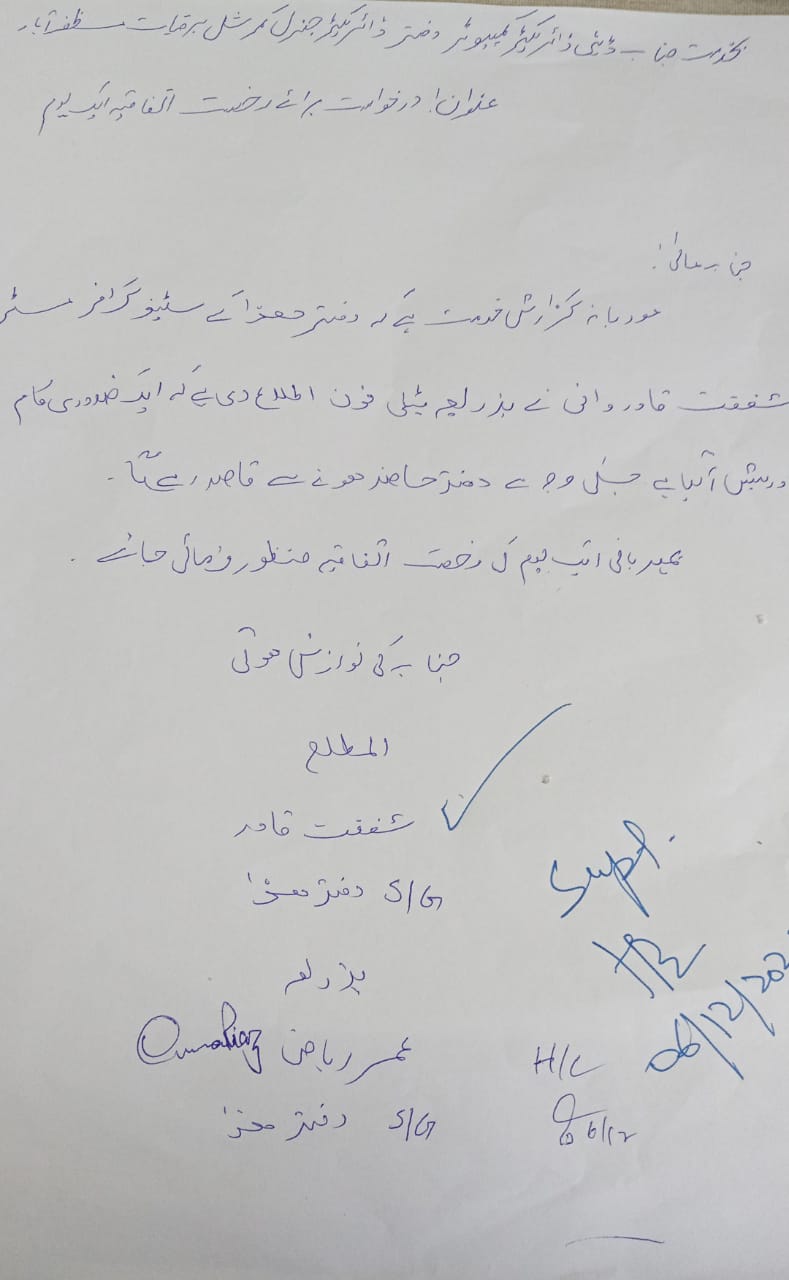 بخدمت جناب ڈپٹی ڈائریکٹر کمپیوٹر دفتر ڈائریکٹر جنرل کمرشل برقیات مظفرآباد
عنوان! درخواست برائے رخصت اتفاقیہ ایک یوم
جناب عالی!
مودبانہ گزارش خدمت ہے کہ دفتر ھذا کے سٹینو گرافر مسٹر
شفقت قادر وانی نے بذریعہ ٹیلی فون اطلاع دی ہے کہ ایک ضروری کام
درپیش آگیا ہے جسکی وجہ سے دفتر حاضر ہونے سے قاصر رہے گا۔
مہربانی ایک یوم کی رخصت اتفاقیہ منظور فرمائی جائے۔
جناب کی نوازش ہوگی
المطلع
شفقت قادر
S/G دفتر ھذا
Supt.
06/12/202
بذریعہ
عمر ریاض Omer Riaz
H/C
S/G دفتر ھذا
6/12